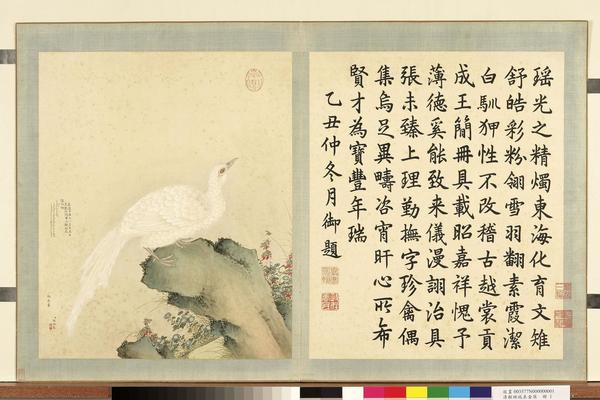 瑶光之精燭東海化育文雉
舒皓彩粉翎雪羽翻素霞潔
白馴狎性不改稽古越裳貢
成王簡冊具載昭嘉祥愧予
薄德奚能致来儀漫詡治具
張未臻上理勤撫字珍禽偶
集烏足異疇咨宵旰心所希
賢才為寶豐年瑞
乙丑仲冬月御題